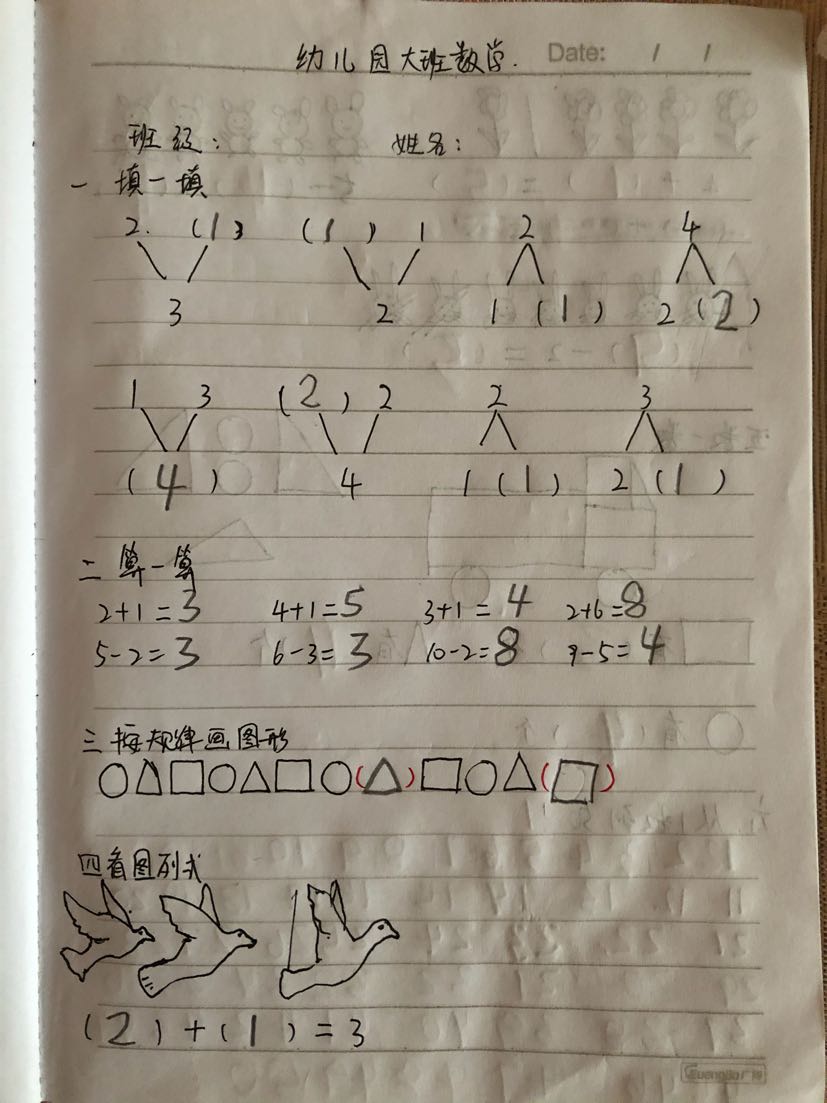 幼儿园大班数学. Date: / /
班级: 姓名:
一 填一填
2. (1) (1) 1 2 4
3 2 1 (1) 2 (2)
1 3 (2) 2 2 3
(4) 4 1 (1) 2 (1)
二 算一算
2+1=3 4+1=5 3+1=4 2+6=8
5-2=3 6-3=3 10-2=8 9-5=4
三 按规律画图形
四 看图列式
(2)+(1)=3
GuangBo广博